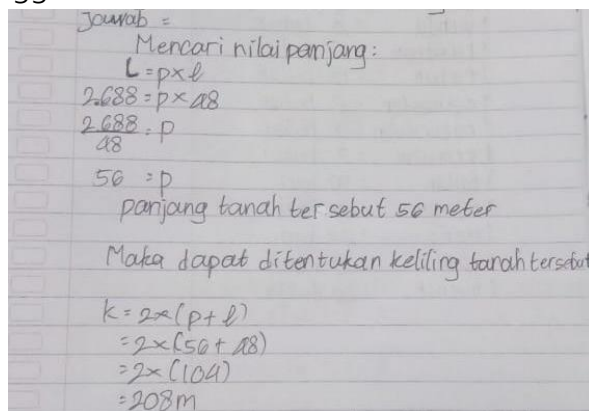 Jawab =
Mencari nilai panjang:
L = p x l
2.688 = p x 48
2.688 = p
48
56 = p
panjang tanah tersebut 56 meter
Maka dapat ditentukan keliling tanah tersebut
k = 2 x (p + l)
= 2 x (56 + 48)
= 2 x (104)
= 208 m